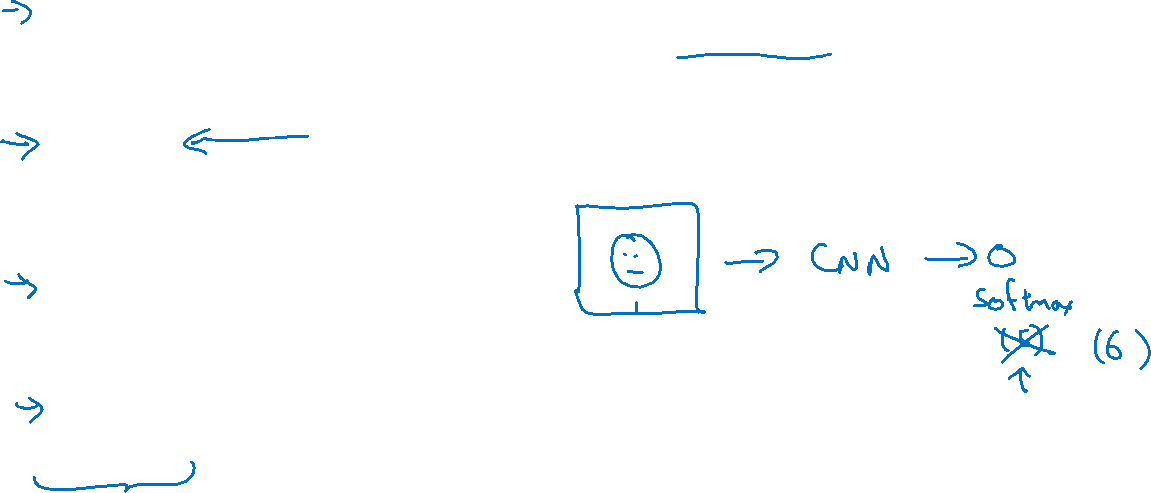 → CNN → O
softmax
(6)